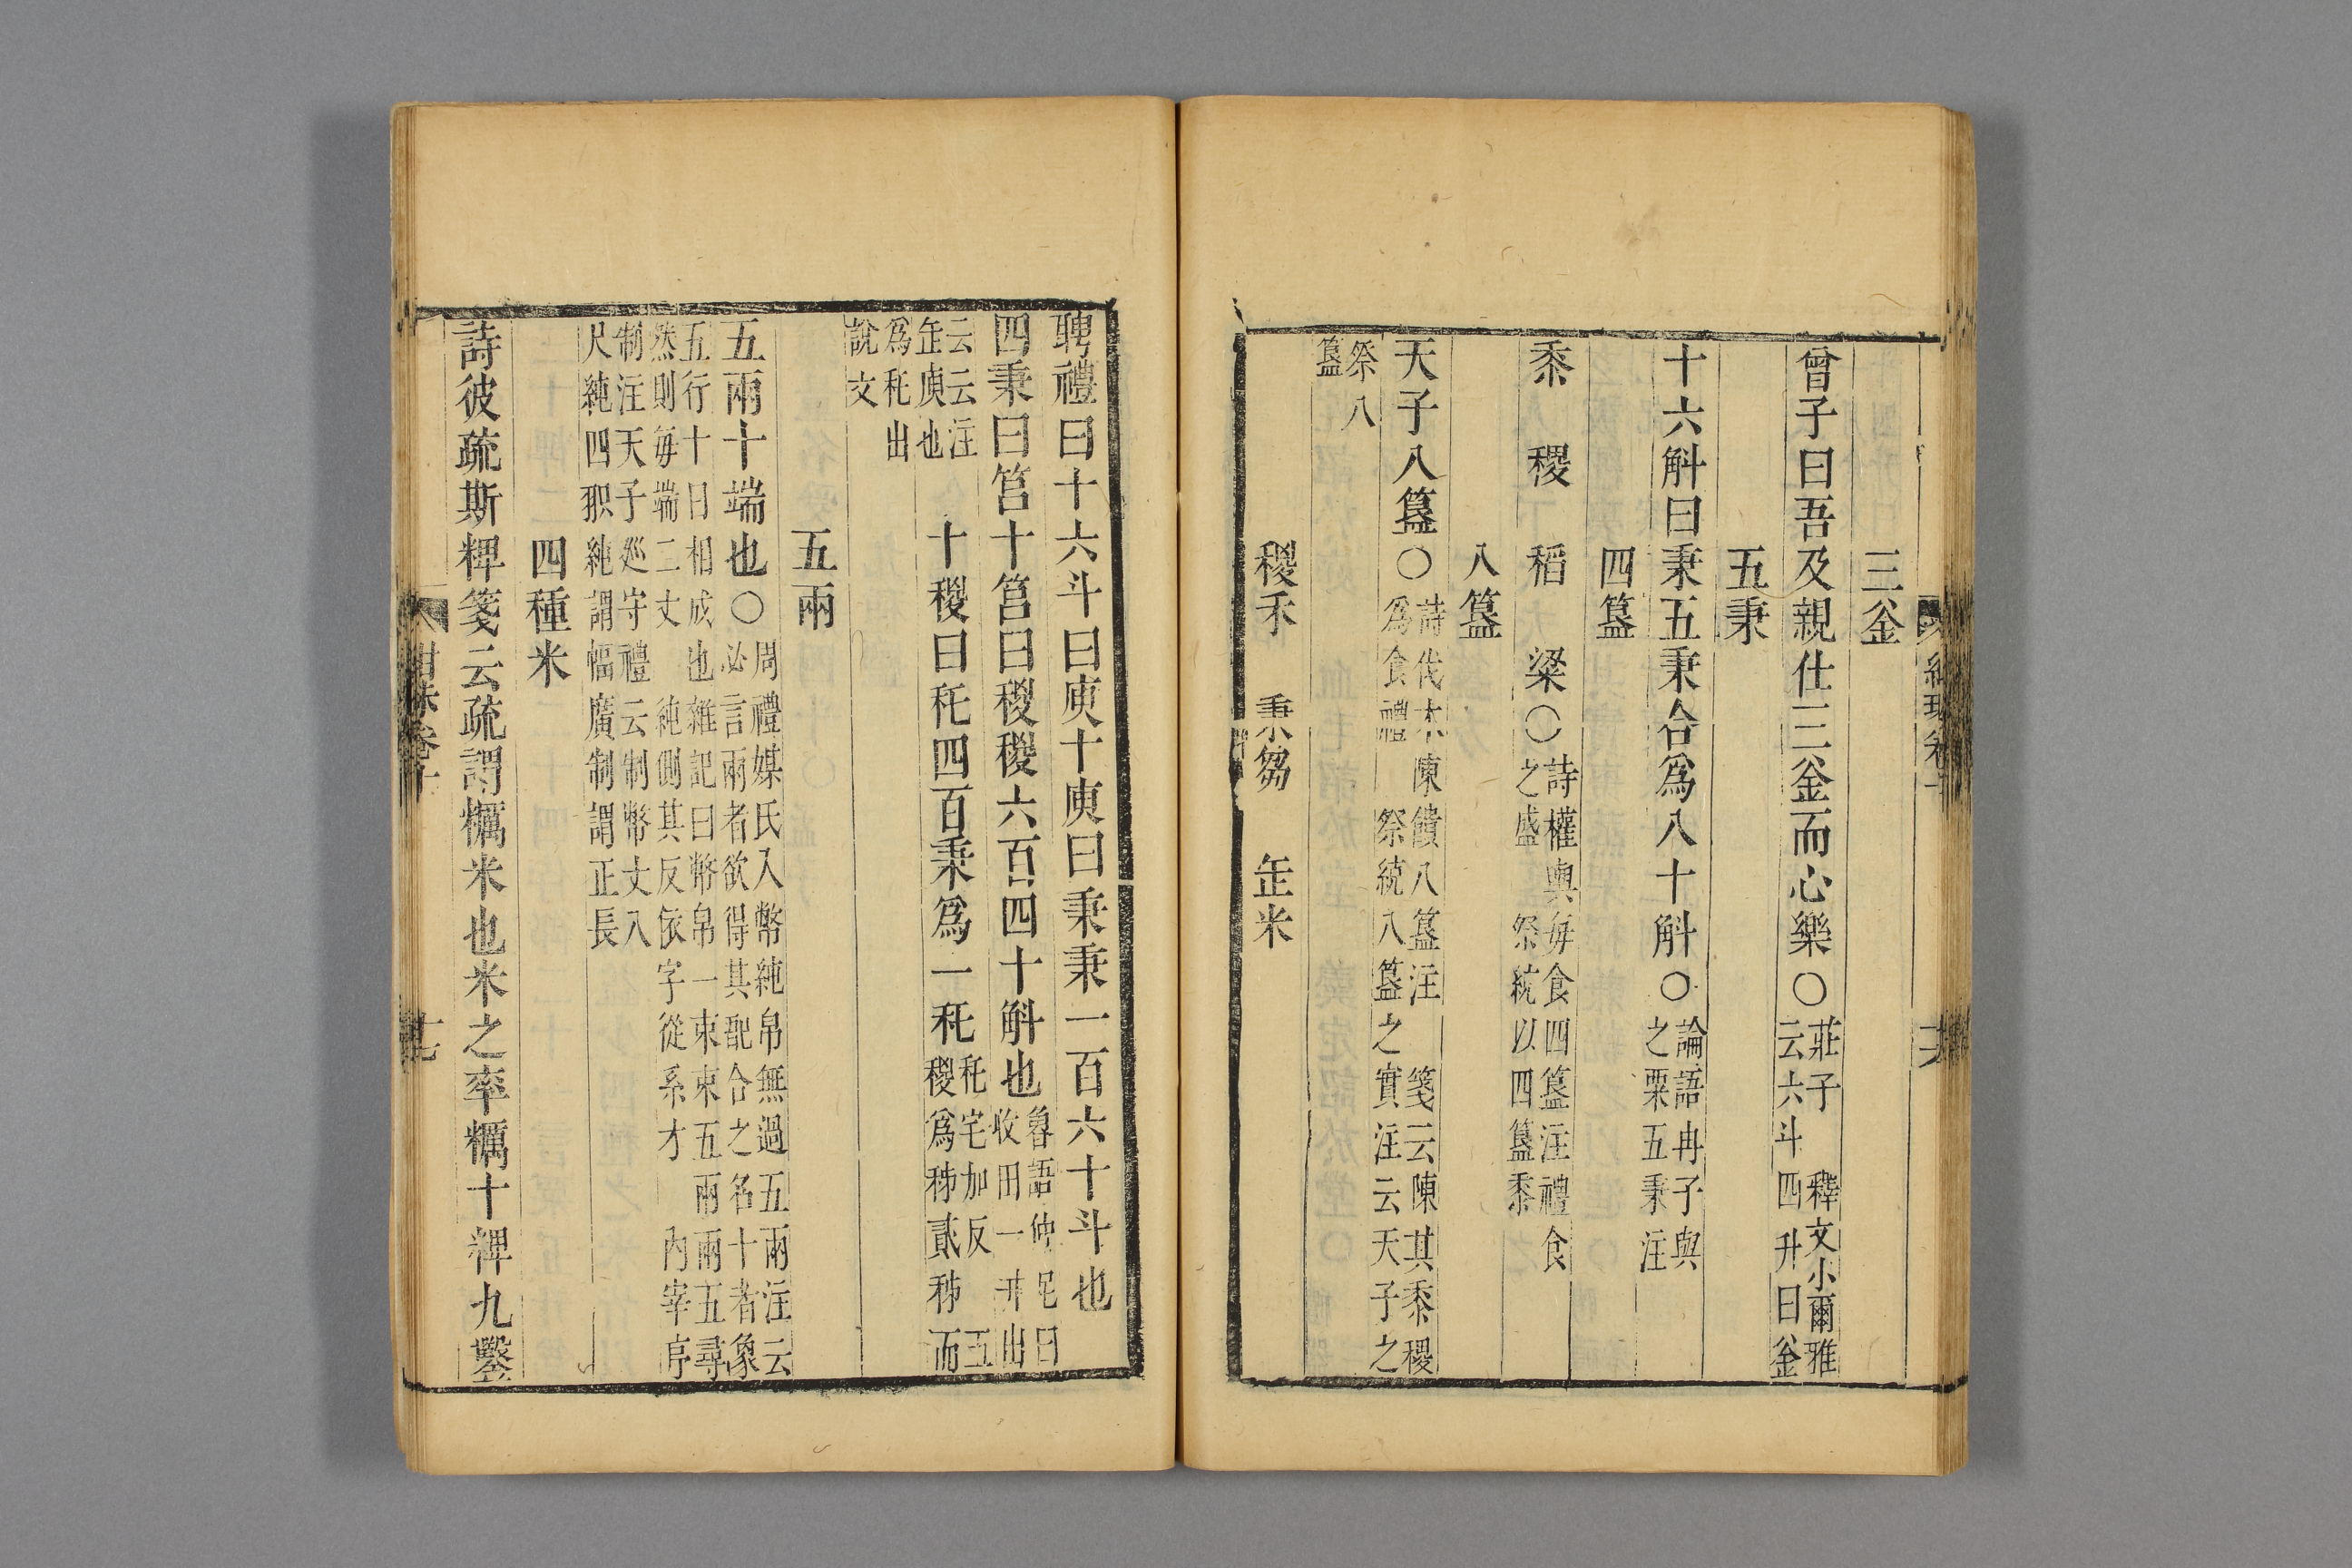 三釜
曾子曰吾及親仕三釜而心樂〇莊子 釋文小爾雅
云六斗四升曰釜
五秉
十六斛曰秉五秉合爲八十斛〇論語冉子與
之粟五秉注
四簋
黍 稷 稻 粱〇詩權輿每食四簋注禮食
之盛 祭統以四簋黍
八簋
天子八簋〇詩伐木陳饋八簋注 箋云陳其黍稷
爲食禮 祭統八簋之實注云天子之
祭八
簋
稷禾 秉芻 缶米
聘禮曰十六斗曰庾十庾曰秉秉一百六十斗也
四秉曰筥十筥曰稯稯六百四十斛也魯語仲尼曰
收田一井出
云云注
缶庾也
十稯曰秅四百秉爲一秅秅宅加反 五
稷爲秭貳秭而
爲秅出
說文
五兩
五兩十端也〇周禮媒氏入幣純帛無過五兩注云
必言兩者欲得其配合之名十者象
五行十日相成也雜記曰幣帛一束束五兩兩五尋
然則每端二丈 純側其反依字從糸才 內宰序
制注天子巡守禮云制幣丈八
尺純四㧗純謂幅廣制謂正長
四種米
詩彼疏斯粺箋云疏謂糲米也米之率糲十粺九鑿